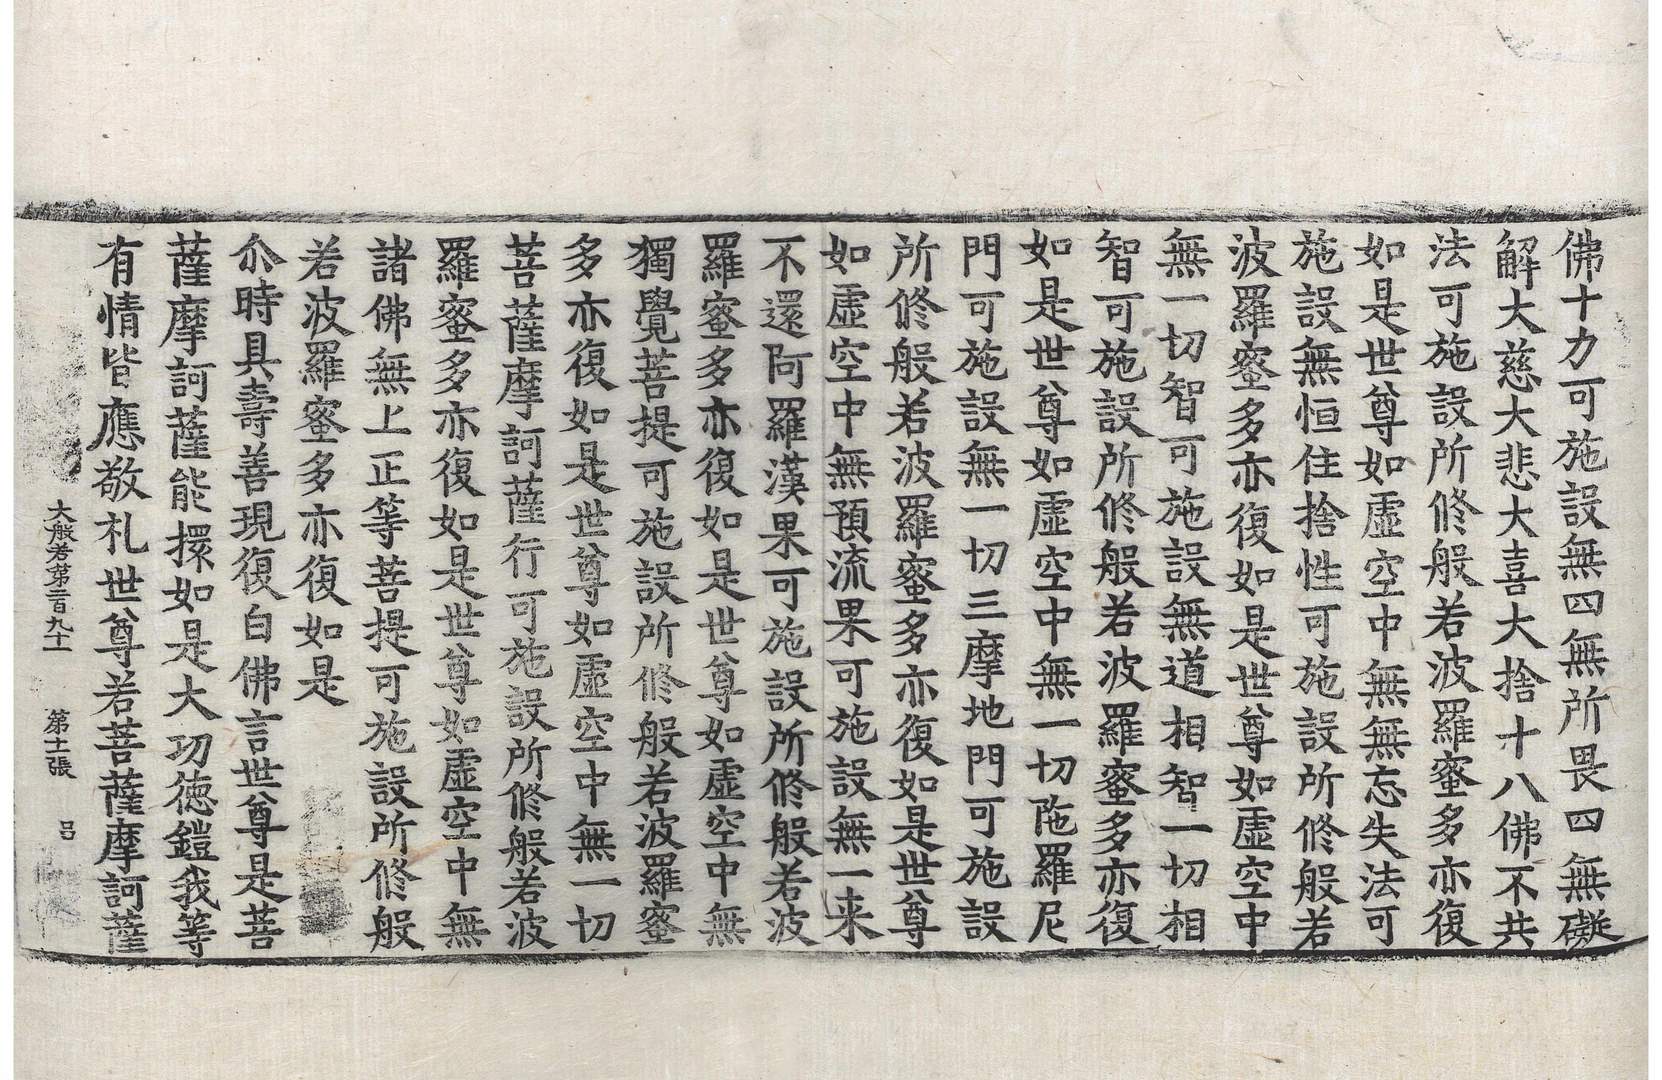 佛十力可施設無四無所畏四無礙
解大慈大悲大喜大捨十八佛不共
法可施設所修般若波羅蜜多亦復
如是世尊如虛空中無無忘失法可
施設無恒住捨性可施設所修般若
波羅蜜多亦復如是世尊如虛空中
無一切智可施設無道相智一切相
智可施設所修般若波羅蜜多亦復
如是世尊如虛空中無一切陁羅尼
門可施設無一切三摩地門可施設
所修般若波羅蜜多亦復如是世尊
如虛空中無預流果可施設無一来
不還阿羅漢果可施設所修般若波
羅蜜多亦復如是世尊如虛空中無
獨覺菩提可施設所修般若波羅蜜
多亦復如是世尊如虛空中無一切
菩薩摩訶薩行可施設所修般若波
羅蜜多亦復如是世尊如虛空中無
諸佛無上正等菩提可施設所修般
若波羅蜜多亦復如是
尒時具壽善現復白佛言世尊是菩
薩摩訶薩能擐如是大功徳鎧我等
有情皆應敬礼世尊若菩薩摩訶薩
大般若第二百九十一 第十一張 吕